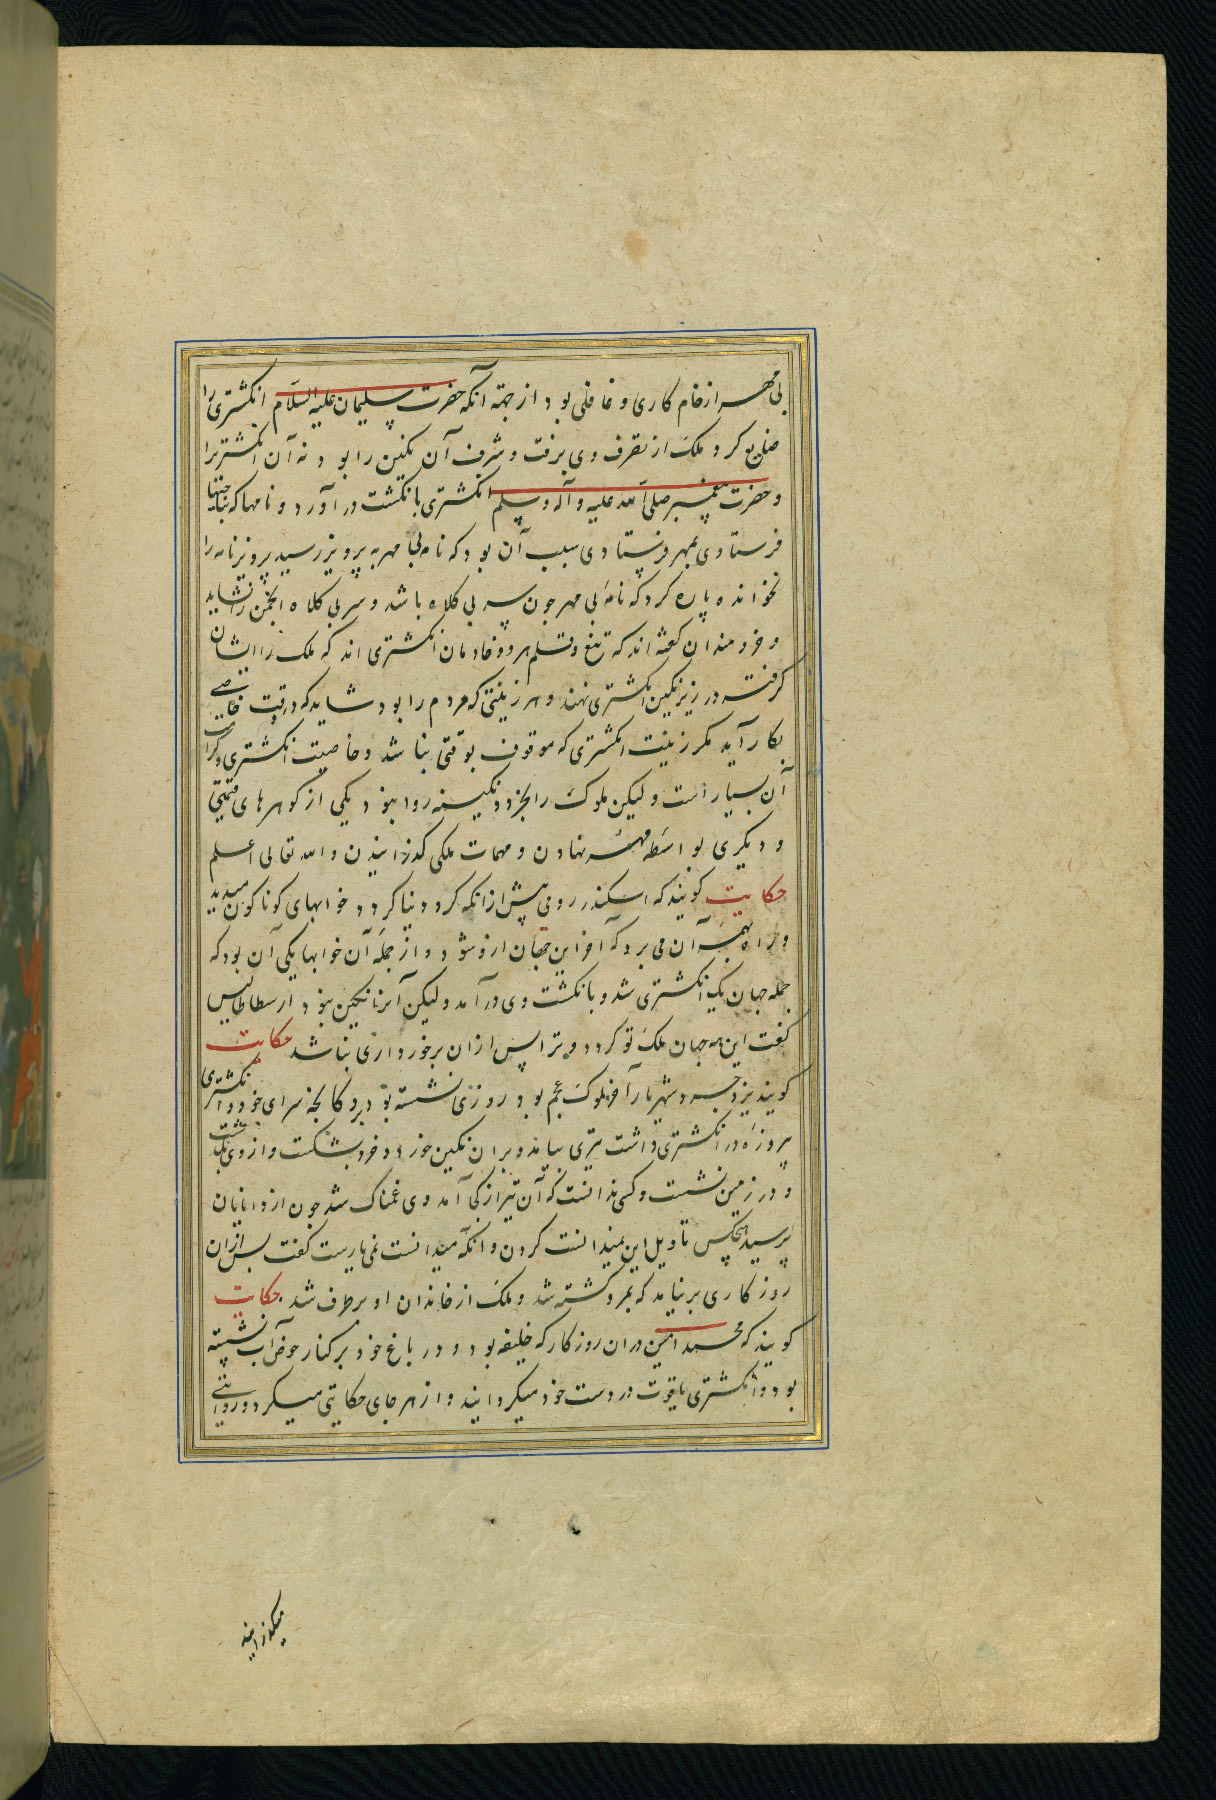 بی مهر از خام کاری و غافلی بود از جهة آنکه حضرت سلیمان علیه السلام انکشتری را
ضایع کرد ملک از تصرف وی برفت و شرف آن نکین را بود نه آن انکشتری را
و حضرت پیغمبر صلی الله علیه و آله و سلم انکشتری بانکشت در آورد و نامها که بناحیتها
فرستادی بمهر فرستادی سبب آن بود که نامه بی مهر به پرویز رسید پرویز نامه را
نخوانده پاره کرد که نامه بی مهر چون سر بی کلاه باشد و سر بی کلاه انجمن را نشاید
و خردمندان کفته اند که تیغ و قلم هر دو خادمان انکشتری اند که ملک را ایشان
کرفته در زیر نکین انکشتری نهند و هر زینتی که مردم را بود شاید که در وقت خاصی
بکار آید مکر زینت انکشتری که موقوف بوقتی نباشد و خاصیت انکشتری و کرامت
آن بسیار است و لیکن ملوک را بجز دو نکینه روا نبود یکی از کوهرهای قیمتی
و دیکری بواسطه مهر نهادن و مهمات ملکی کذرانیدن والله تعالی اعلم
حکایت کویند که اسکندر رومی پیش از آنکه کرد دنیا کردد خوابهای کوناکون میدید
و راه بهمه آن می برد که آخر این جهان ازو شود و از جمله آن خوابها یکی آن بود که
جمله جهان یک انکشتری شد و بانکشت وی در آمد و لیکن آنرا نکین نبود ارسطاطالیس
کفت این همه جهان ملک تو کردد و ترا پس از آن برخورداری نباشد حکایت
کویند یزدجرد شهریار آخر ملوک عجم بود روزی نشسته بود بر دکانچه سرای خود و انکشتری
پیروزه در انکشتری داشت تیری بیامد و بر آن نکین خورد و خرد بشکست و از وی بگذشت
و در زمین نشست و کسی ندانست که آن تیر از کجا آمد وی غمناک شد چون از دانایان
پرسید هیچکس تاویل این نمیدانست کردن و آنکه میدانست نمی یارست کفت پس از آن
روزکاری بر نیامد که بمرو کشته شد و ملک از خاندان او برطرف شد حکایت
کویند که محمد امین در آن روزکار که خلیفه بود و در باغ خود بر کنار حوض آب نشسته
بود و انکشتری یاقوت در دست خود میکردانید و از هر جای حکایتی میکرد و روایتی
میکذرانید